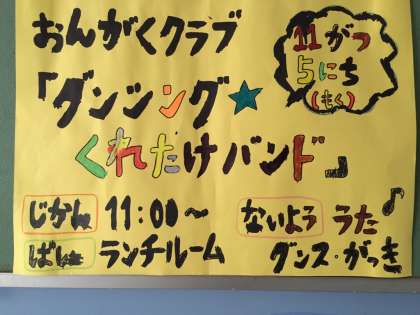 おんがくクラブ
11がつ
5にち
(もく)
「ダンシング★
くれたけバンド」
じかん 11:00～
ないよう うた♪
ばしょ ランチルーム
ダンス・がっき